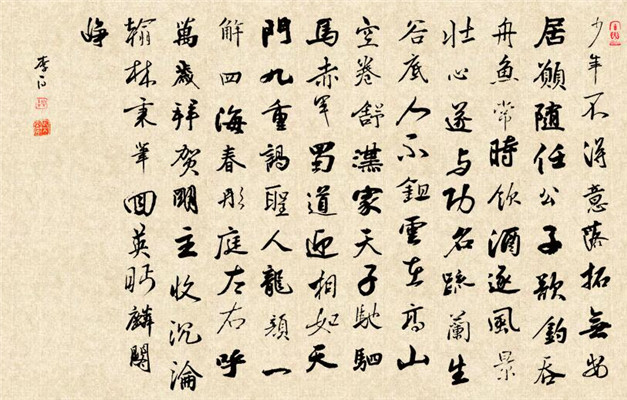 少年不得意落拓無安
居願随任公子欲釣吞
舟魚常時飲酒逐風景
壮心遂与功名疏蘭生
谷底人不鉏雲在高山
空卷舒漢家天子馳駟
馬赤军蜀道迎相如天
門九重謁聖人龍顔一
解四海春彤庭左右呼
萬歲拜贺明主收沉淪
翰林秉筆回英眄麟閣
崢
李白